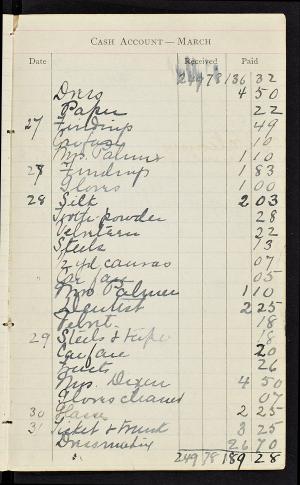 CASH ACCOUNT—MARCH
Date Received Paid
249 78 136 32
Dress 4 50
Paper 22
27 Findings 49
Carfare 10
Mrs. Palmer 1 10
28 Findings 1 83
Gloves 1 00
28 Silk 2 03
Tooth powder 28
Velveteen 22
Steels 13
2 yd canvas 07
Car fare 05
Mrs Palmer 1 10
Dentist 2 25
Velvet. 18
29 Steels & tape 18
Carfare 20
Fruits 26
Mrs. Dixen 4 50
Gloves cleaned 07
30 2 25
31 Ticket & trunk 3 25
Dressmaking 26 70
249 78 189 28